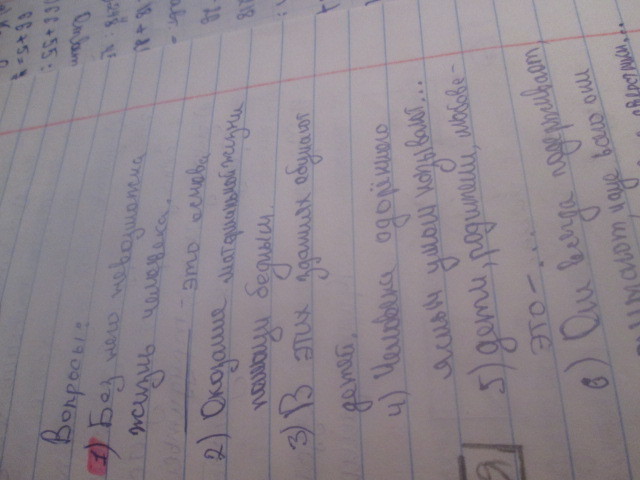 Вопросы:
1) Без него невозможна
жизнь человека.
- это основа
2) Оказание материальной жизни
помощи бедным.
3) В этих зданиях обучают
детей.
4) Человека одорённого
ясным умом называют...
5) дети, родители, любовь-
это-...
6) Они всегда подерживают,
они